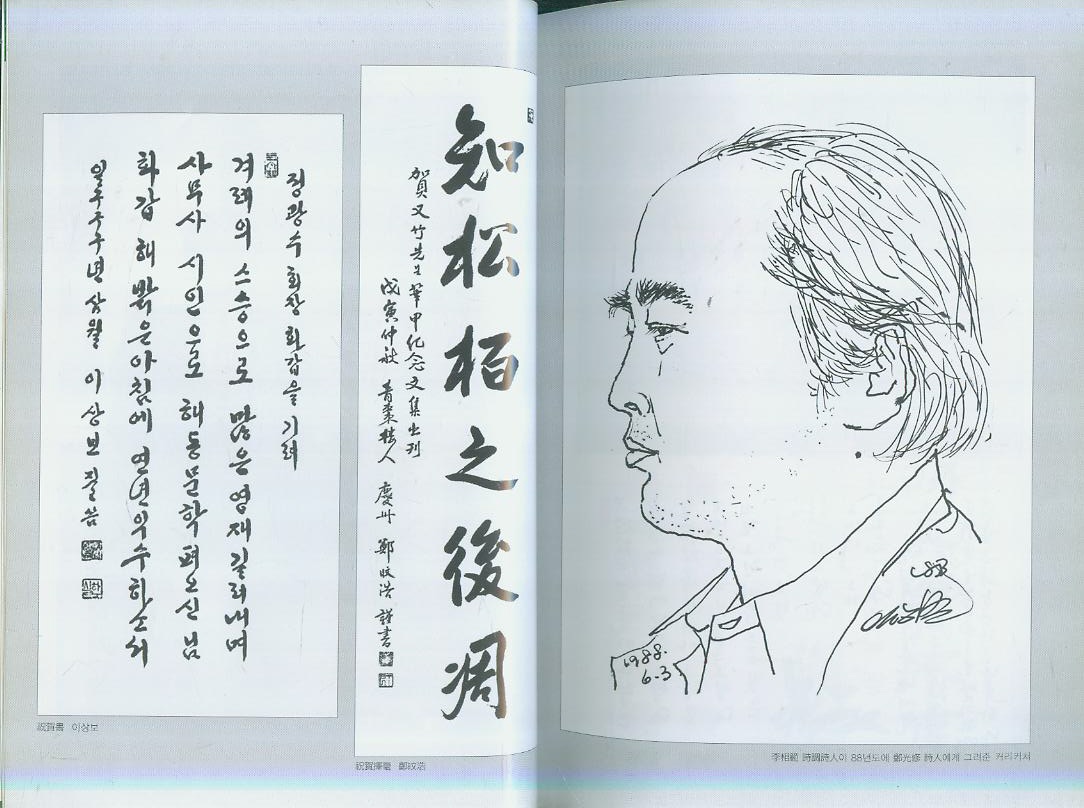 정광수 회장 화갑을 기려
겨레의 스승으로 많은 영재 길러내며
사무사 시인으로 해동문학 펴오신 님
화갑 해 밝은 아침에 연년익수 하소서
일구구구년 삼월 이상보 씀
祝賀書 이상보
知松栢之後凋
賀又竹先生華甲紀念文集出刊
戊寅仲秋 人 慶州 鄭旼浩 謹書
祝賀揮毫 鄭旼浩
1988.
6.3
李相範 時調詩人이 88년도에 鄭光修 詩人에게 그려준 커리커쳐